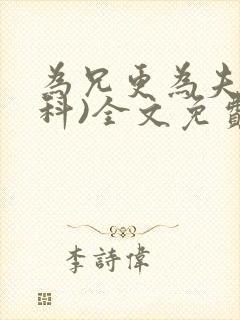 為兄更為夫
科)全文免費
李詩偉